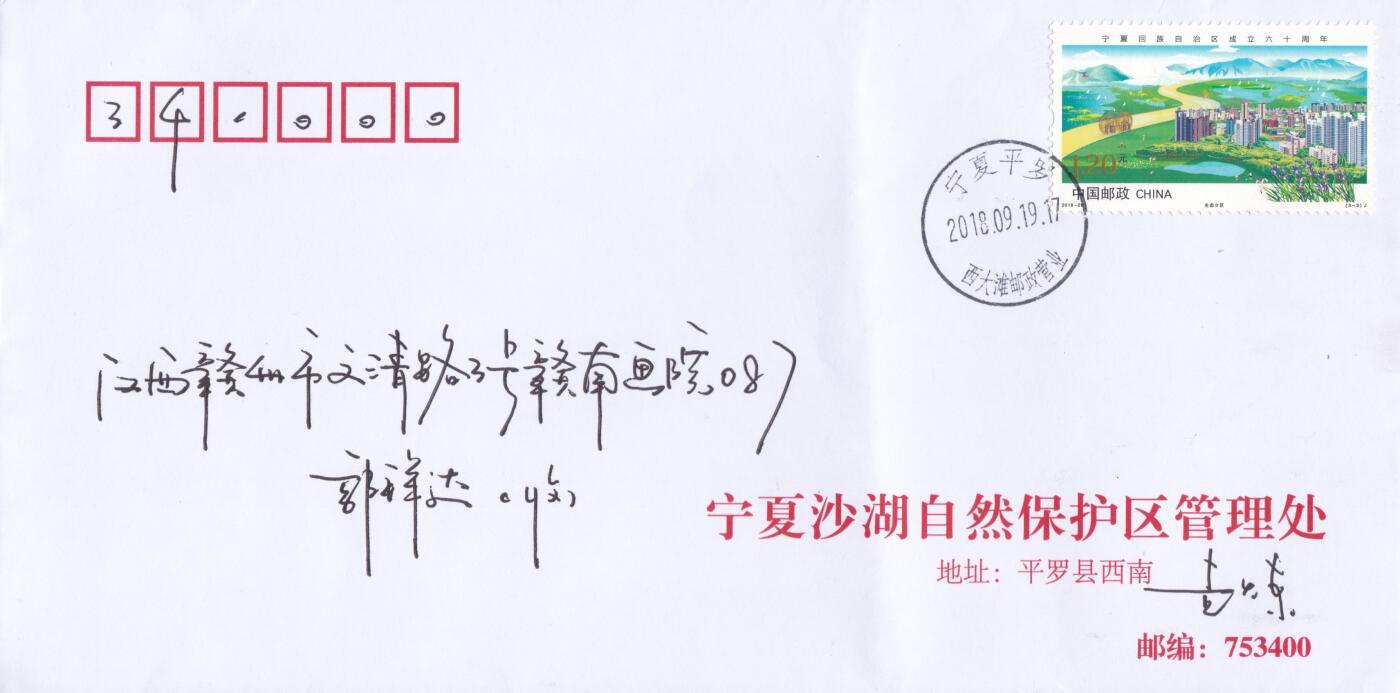 宁夏回族自治区成立六十周年
1.20元
中国邮政 CHINA
生态立区
(3-3)J
宁夏平罗
2018.09.19.17
西大滩邮政营业
340000
江西赣州市文清路3号赣南画院087
郭祥达(收)
宁夏沙湖自然保护区管理处
地址：平罗县西南
邮编：753400